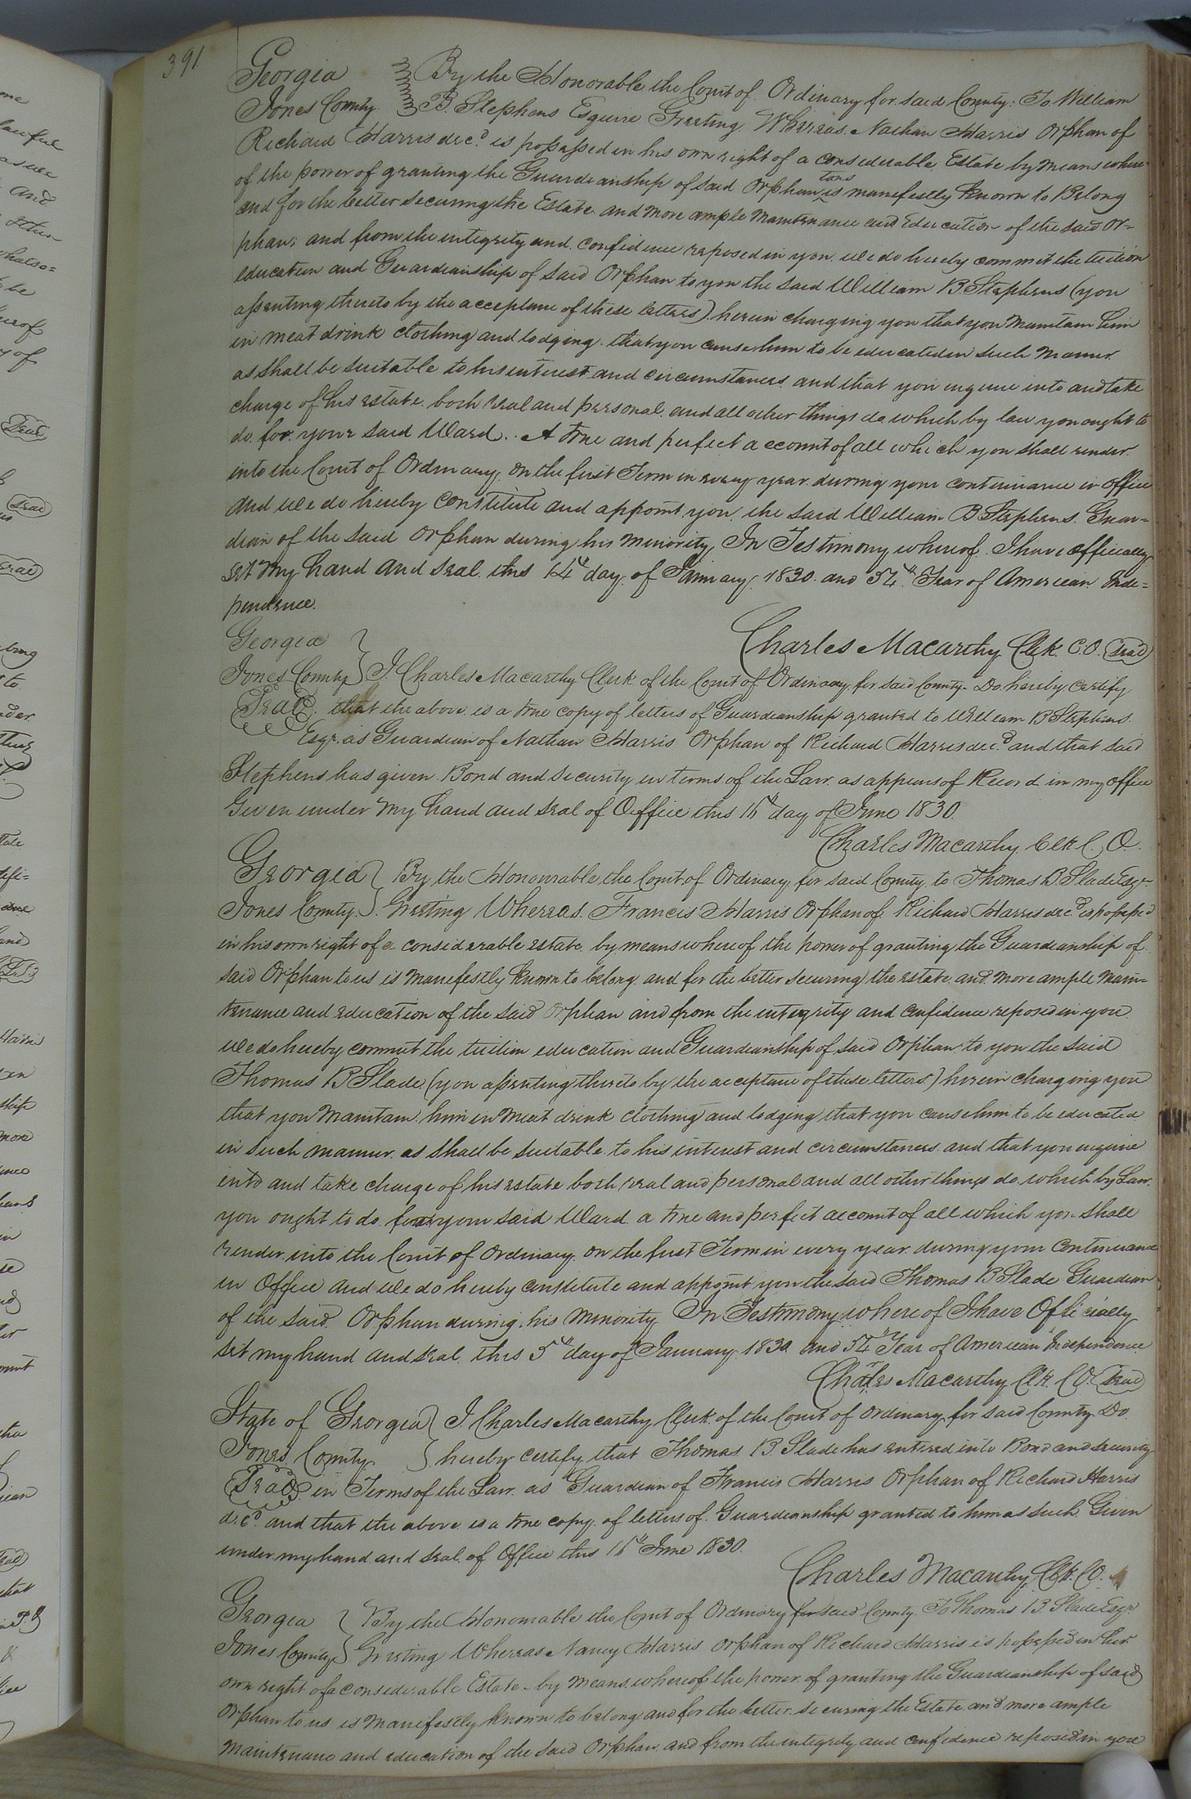 391
Georgia } By the Honorable the Court of Ordinary for said County: To William
Jones County } B. Stephens Esquire Greeting Whereas Nathan Harris Orphan of
Richard Harris decd is possessed in his own right of a considerable Estate by means where
of the power of granting the Guardianship of said Orphan to us is manifestly known to Belong
and for the better securing the Estate and more ample Maintenance and Education of the said Or-
phan, and from the integrity and confidence reposed in you we do hereby commit the tuition
education and Guardianship of said Orphan to you the said William B Stephens (you
assenting thereto by the acceptance of these letters) herein charging you that you Maintain him
in meat drink clothing and lodging that you cause him to be educated in such manner
as shall be suitable to his interest and circumstances and that you inquire into and take
charge of his estate both real and personal and all other things do which by law you ought to
do for your said Ward. A true and perfect account of all which you shall render
into the Court of Ordinary, on the first Term in every year during your continuance in office
and we do hereby constitute and appoint you the said William B Stephens Guar-
dian of the said Orphan during his minority In Testimony whereof I have officially
set my hand and seal this 14th day of January 1830 and 54th Year of American Inde-
pendence.
Charles Macarthy Clk. C.O. Seal
Georgia }
Jones County } I Charles Macarthy Clerk of the Court of Ordinary for said County Do hereby certify
Seal that the above is a true copy of letters of Guardianship granted to William B Stephens
Esqr. as Guardian of Nathan Harris Orphan of Richard Harris decd and that said
Stephens has given Bond and security in terms of the Law as appears of Record in my office
Given under my hand and seal of Office this day of June 1830.
Charles Macarthy Clk C. O.
Georgia } By the Honourable the Court of Ordinary for said County to Thomas B Slade Esqr
Jones County } Greeting Whereas Francis Harris Orphan of Richard Harris decd is possess'd
in his own right of a considerable estate by means whereof the power of granting the Guardianship of
said Orphan to us is manifestly known to belong and for the better securing the estate and more ample main-
tenance and education of the said Orphan and from the integrity and confidence reposed in you
we do hereby commit the tuition education and Guardianship of said Orphan to you the said
Thomas B Slade (you assenting thereto by the acceptance of these letters) herein charging you
that you Maintain him in Meat drink clothing and lodging that you cause him to be educated
in such manner as shall be suitable to his interest and circumstances and that you inquire
into and take charge of his estate both real and personal and all other things do which by Law
you ought to do for your said Ward a true and perfect account of all which you shall
render into the Court of Ordinary on the first Term in every year during your Continuance
in Office and we do hereby constitute and appoint you the said Thomas B Slade Guardian
of the said Orphan during his Minority In Testimony whereof I have Officially
set my hand and seal this 5th day of January 1830 and 54th Year of American Independence
Charles Macarthy Clk. C.O. Seal
State of Georgia } I Charles Macarthy Clerk of the Court of Ordinary for said County Do
Jones County } hereby certify that Thomas B Slade has entered into Bond and security
Seal in Terms of the Law as Guardian of Francis Harris Orphan of Richard Harris
decd and that the above is a true copy of letters of Guardianship granted to him as such Given
under my hand and seal of Office this June 1830.
Charles Macarthy Clk. C.O.
Georgia } By the Honourable the Court of Ordinary for said County To Thomas B Slade Esqr
Jones County } Greeting Whereas Nancy Harris Orphan of Richard Harris is possessed in her
own right of a considerable Estate by means whereof the power of granting the Guardianship of said
Orphan to us is Manifestly known to belong and for the better securing the Estate and more ample
maintenance and education of the said Orphan and from the integrity and confidence reposed in you